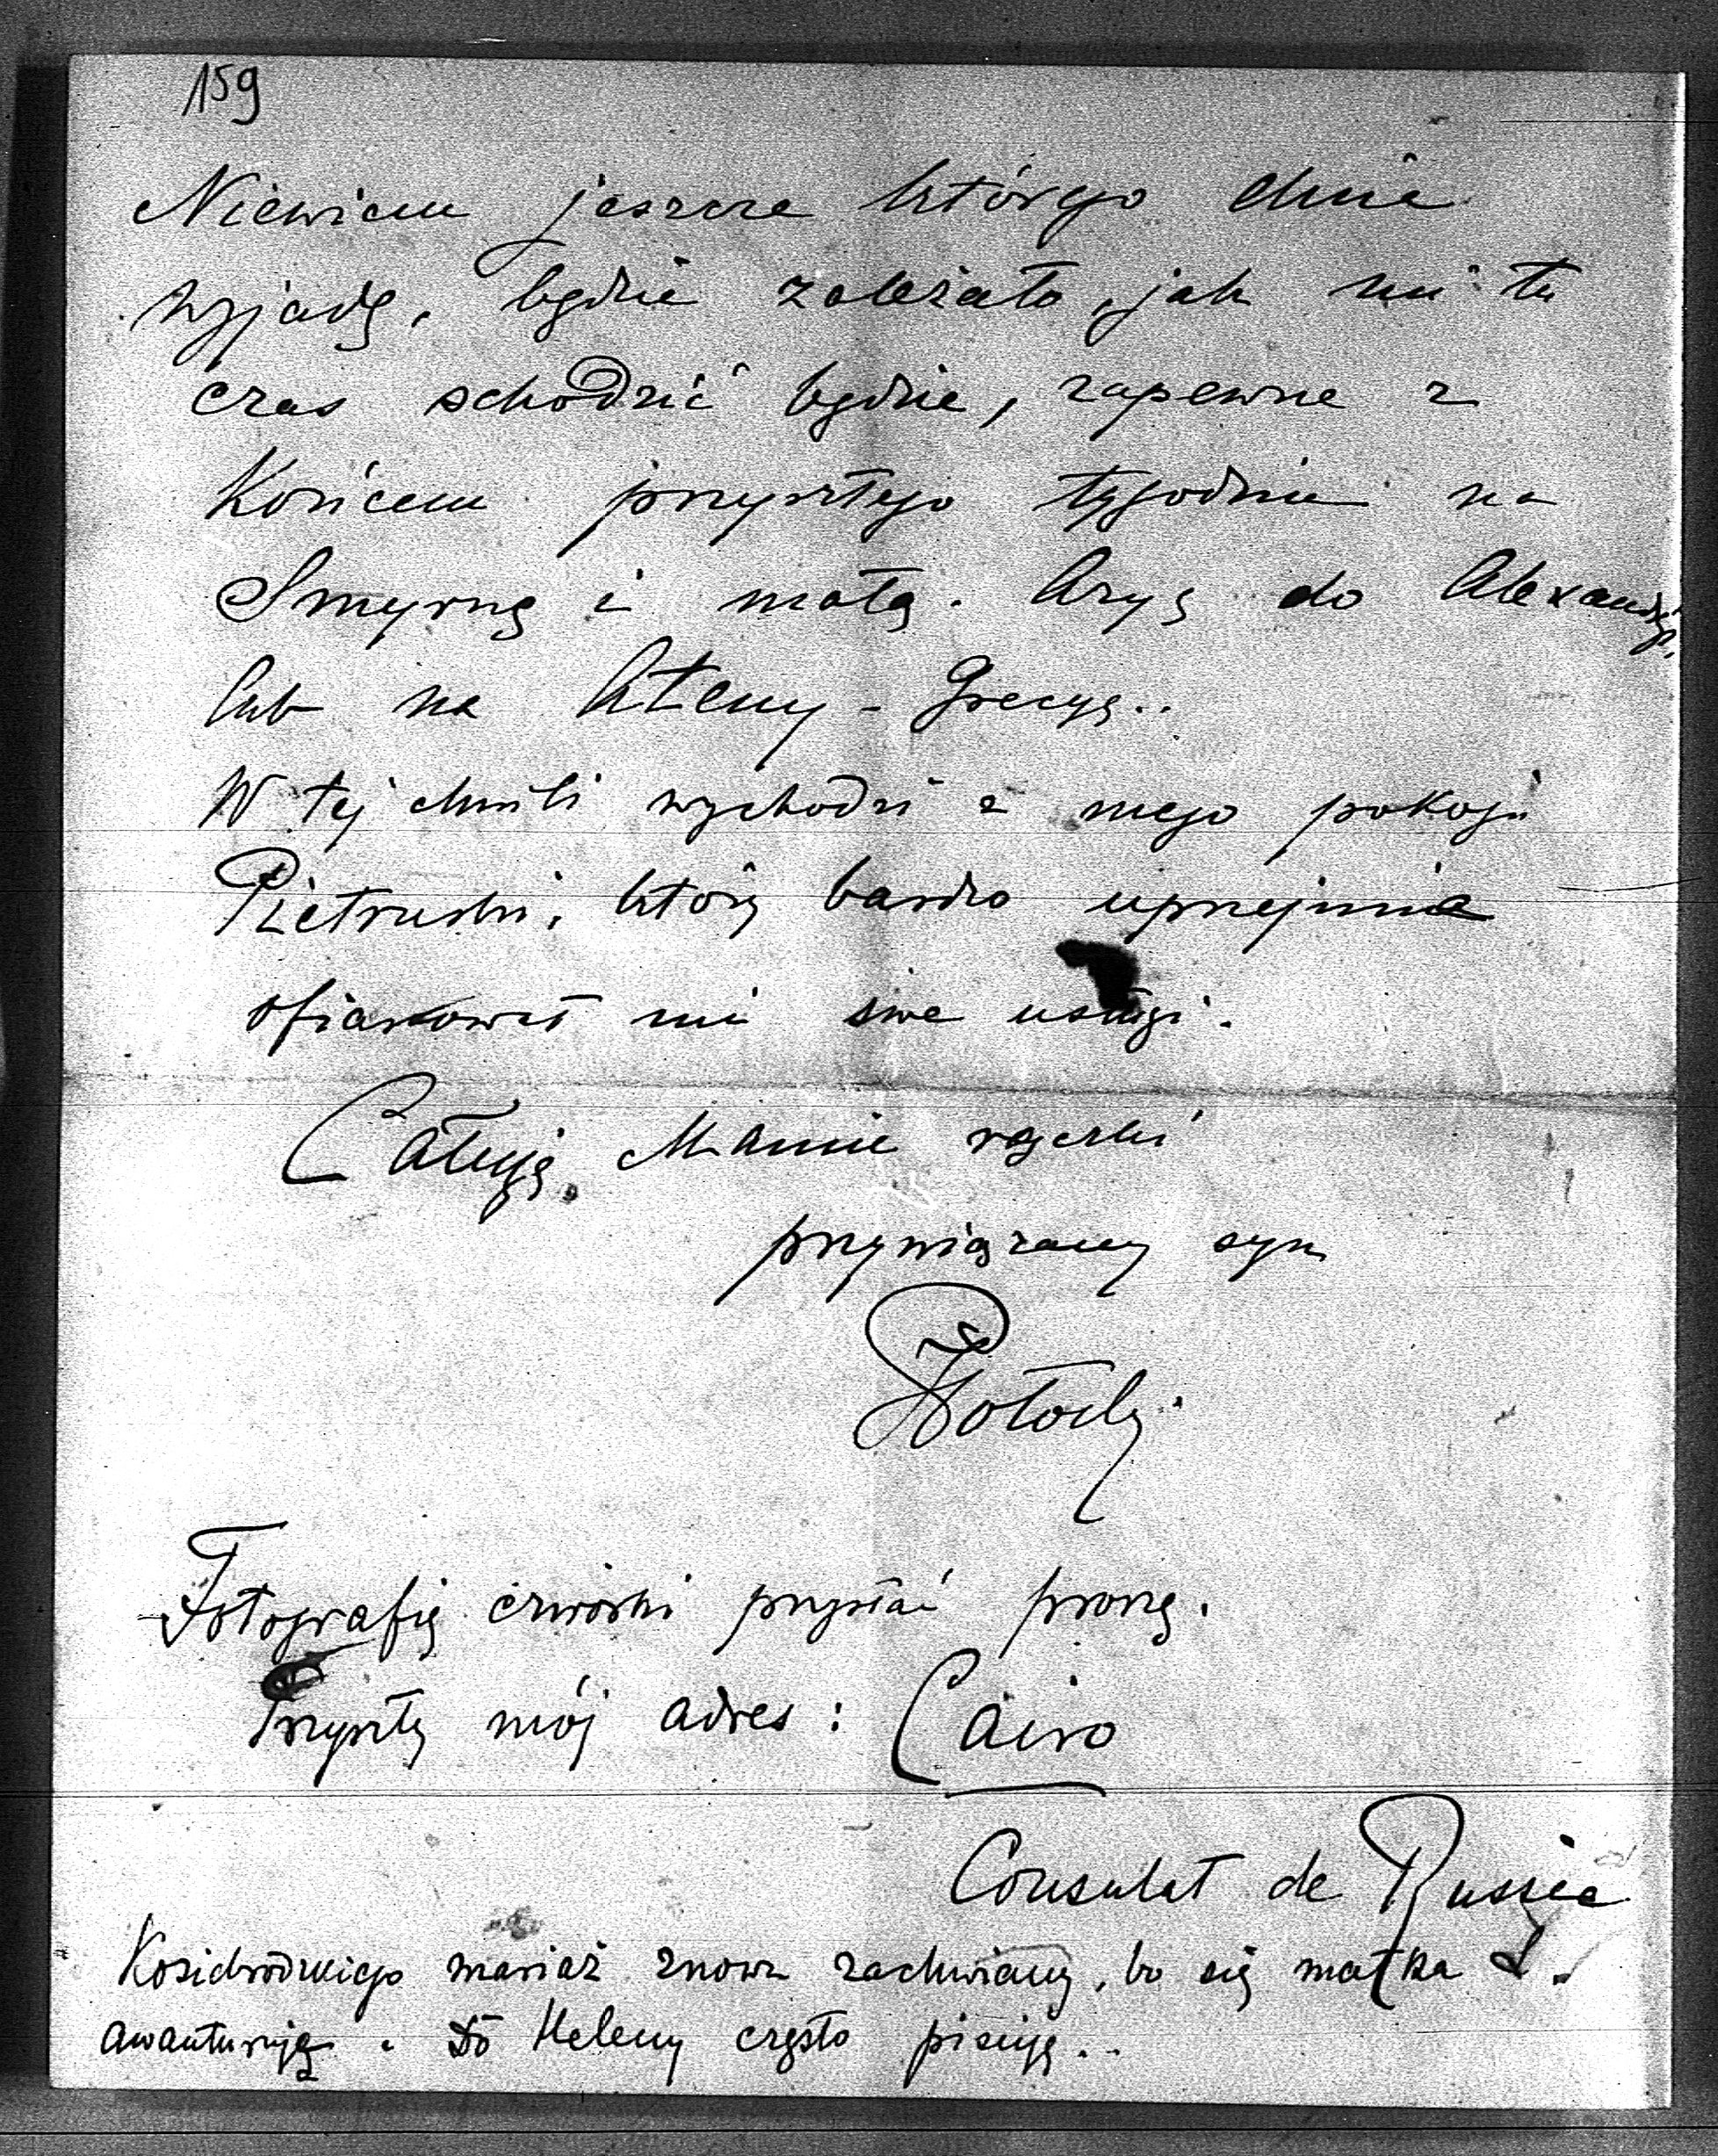 159
Niewiem jeszcze którego dnia
wyjadę, będzie zależało, jak mi tu
czas schodzić będzie, zapewne z
Końcem przyszłego tygodnia na
Smyrnę i małą Azyę do Alexandryi,
lub na Ateny - Grecyę..
W tej chwili wychodzi z mego pokoju
Pietruski, który bardzo uprzejmie
ofiarował mi swe usługi.
Całuję Mamie rączki
przywiązany syn
Fotografię czwórki przysłać proszę.
Przyszły mój adres: Cairo
Consulat de Russie
mariaż znowu zachwiany, bo się matka
awanturuje. Do Heleny często pisuję..